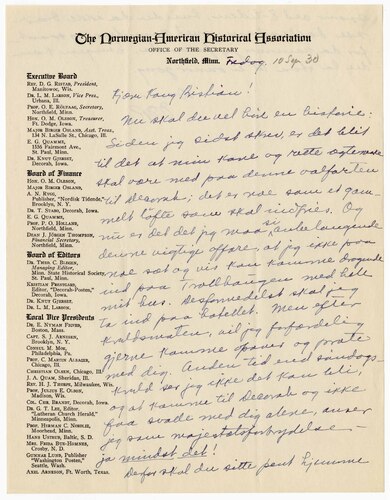 The Norwegian-American Historical Association
OFFICE OF THE SECRETARY
Northfield, Minn.
Fredag, 10 Sep. 30
Executive Board
REV. D. G. RISTAD, President,
Manitowoc, Wis.
DR. L. M. LARSON, Vice Pres.,
Urbana, Ill.
PROF. O. E. ROLVAAG, Secretary,
Northfield, Minn.
HON. O. M. OLESON, Treasurer,
Ft. Dodge, Iowa.
MAJOR BIRGER OSLAND, Asst. Treas.,
134 N. LaSalle St., Chicago.
E. G. QUAMME,
1356 Fairmont Ave.,
St. Paul, Minn.
DR. KNUT GJERSET,
Decorah, Iowa.
Board of Finance
HON. O. M. OLESON,
MAJOR BIRGER OSLAND,
A. N. RYGG,
Publisher, "Nordisk Tidende,"
Brooklyn, N. Y.
DR. T. STABO, Decorah, Iowa.
E. G. QUAMME,
St. Paul, Minn.
PROF. P. O. HOLLAND,
Northfield, Minn.
DEAN J. JÖRGEN THOMPSON,
Financial Secretary,
Northfield, Minn.
Board of Editors
DR. THEO. C. BLEGEN,
Managing Editor,
Minn. State Historical Society,
St. Paul, Minn.
KRISTIAN PRESTGARD,
Editor, "Decorah-Posten,"
Decorah, Iowa.
DR. KNUT GJERSET,
DR. L. M. LARSON.
Local Vice Presidents
DR. E. NYMAN FIGVED,
Boston, Mass.
CAPT. S. J. ARNESEN,
Brooklyn, N. Y.
CONSUL M. MOE,
Philadelphia, Pa.
PROF. C. MARTIN ALSAGER,
Chicago, Ill.
CHRISTIAN CARLSEN, Chicago, Ill.
J. A. QUAM, Sheridan, Ill.
REV. H. J. THORPE, Milwaukee, Wis.
PROF. JULIUS E. OLSON,
Madison, Wis.
COL. CHR. BRANDT, Decorah, Iowa.
DR. G. T. LEE, Editor,
"Lutheran Church Herald,"
Minneapolis, Minn.
PROF. HERMAN C. NORDLIE,
Moorhead, Minn.
HANS USTRUD, Baltic, S. D.
MRS. FRIDA BUE-HOMNES,
Crosby, N. D.
GUNNAR LUND, Publisher
"Washington Posten,"
Seattle, Wash.
AXEL ARNESON, Ft. Worth, Texas.
Kjære Kong Kristian!
Nu skal du vel høre en historie:
Siden jeg sidst skrev, er det blit
til det at min kone og rette egtemave
skal være med paa denne valfarten
til Decorah; det er noe som et gam-
melt løfte som skal indfries. Og
nu er det det jeg maa
at jeg ikke paa
noe sæt og vis kan komme dragende
ind paa Trollhaugen med hele
mit hus. Desformedelst skal jeg
ta ind paa hotellet. Men efter
kveldsmaten, vil jeg forfærdelig
gjerne komme over og prate
med dig. Anden tid end søndags-
kveld ser jeg ikke det kan bli;
og at komme til Decorah og ikke
faa svade med dig alene, anser
jeg som majestætsforbrydelse –
ja mindst det!
Derfor skal du sitte pent hjemme